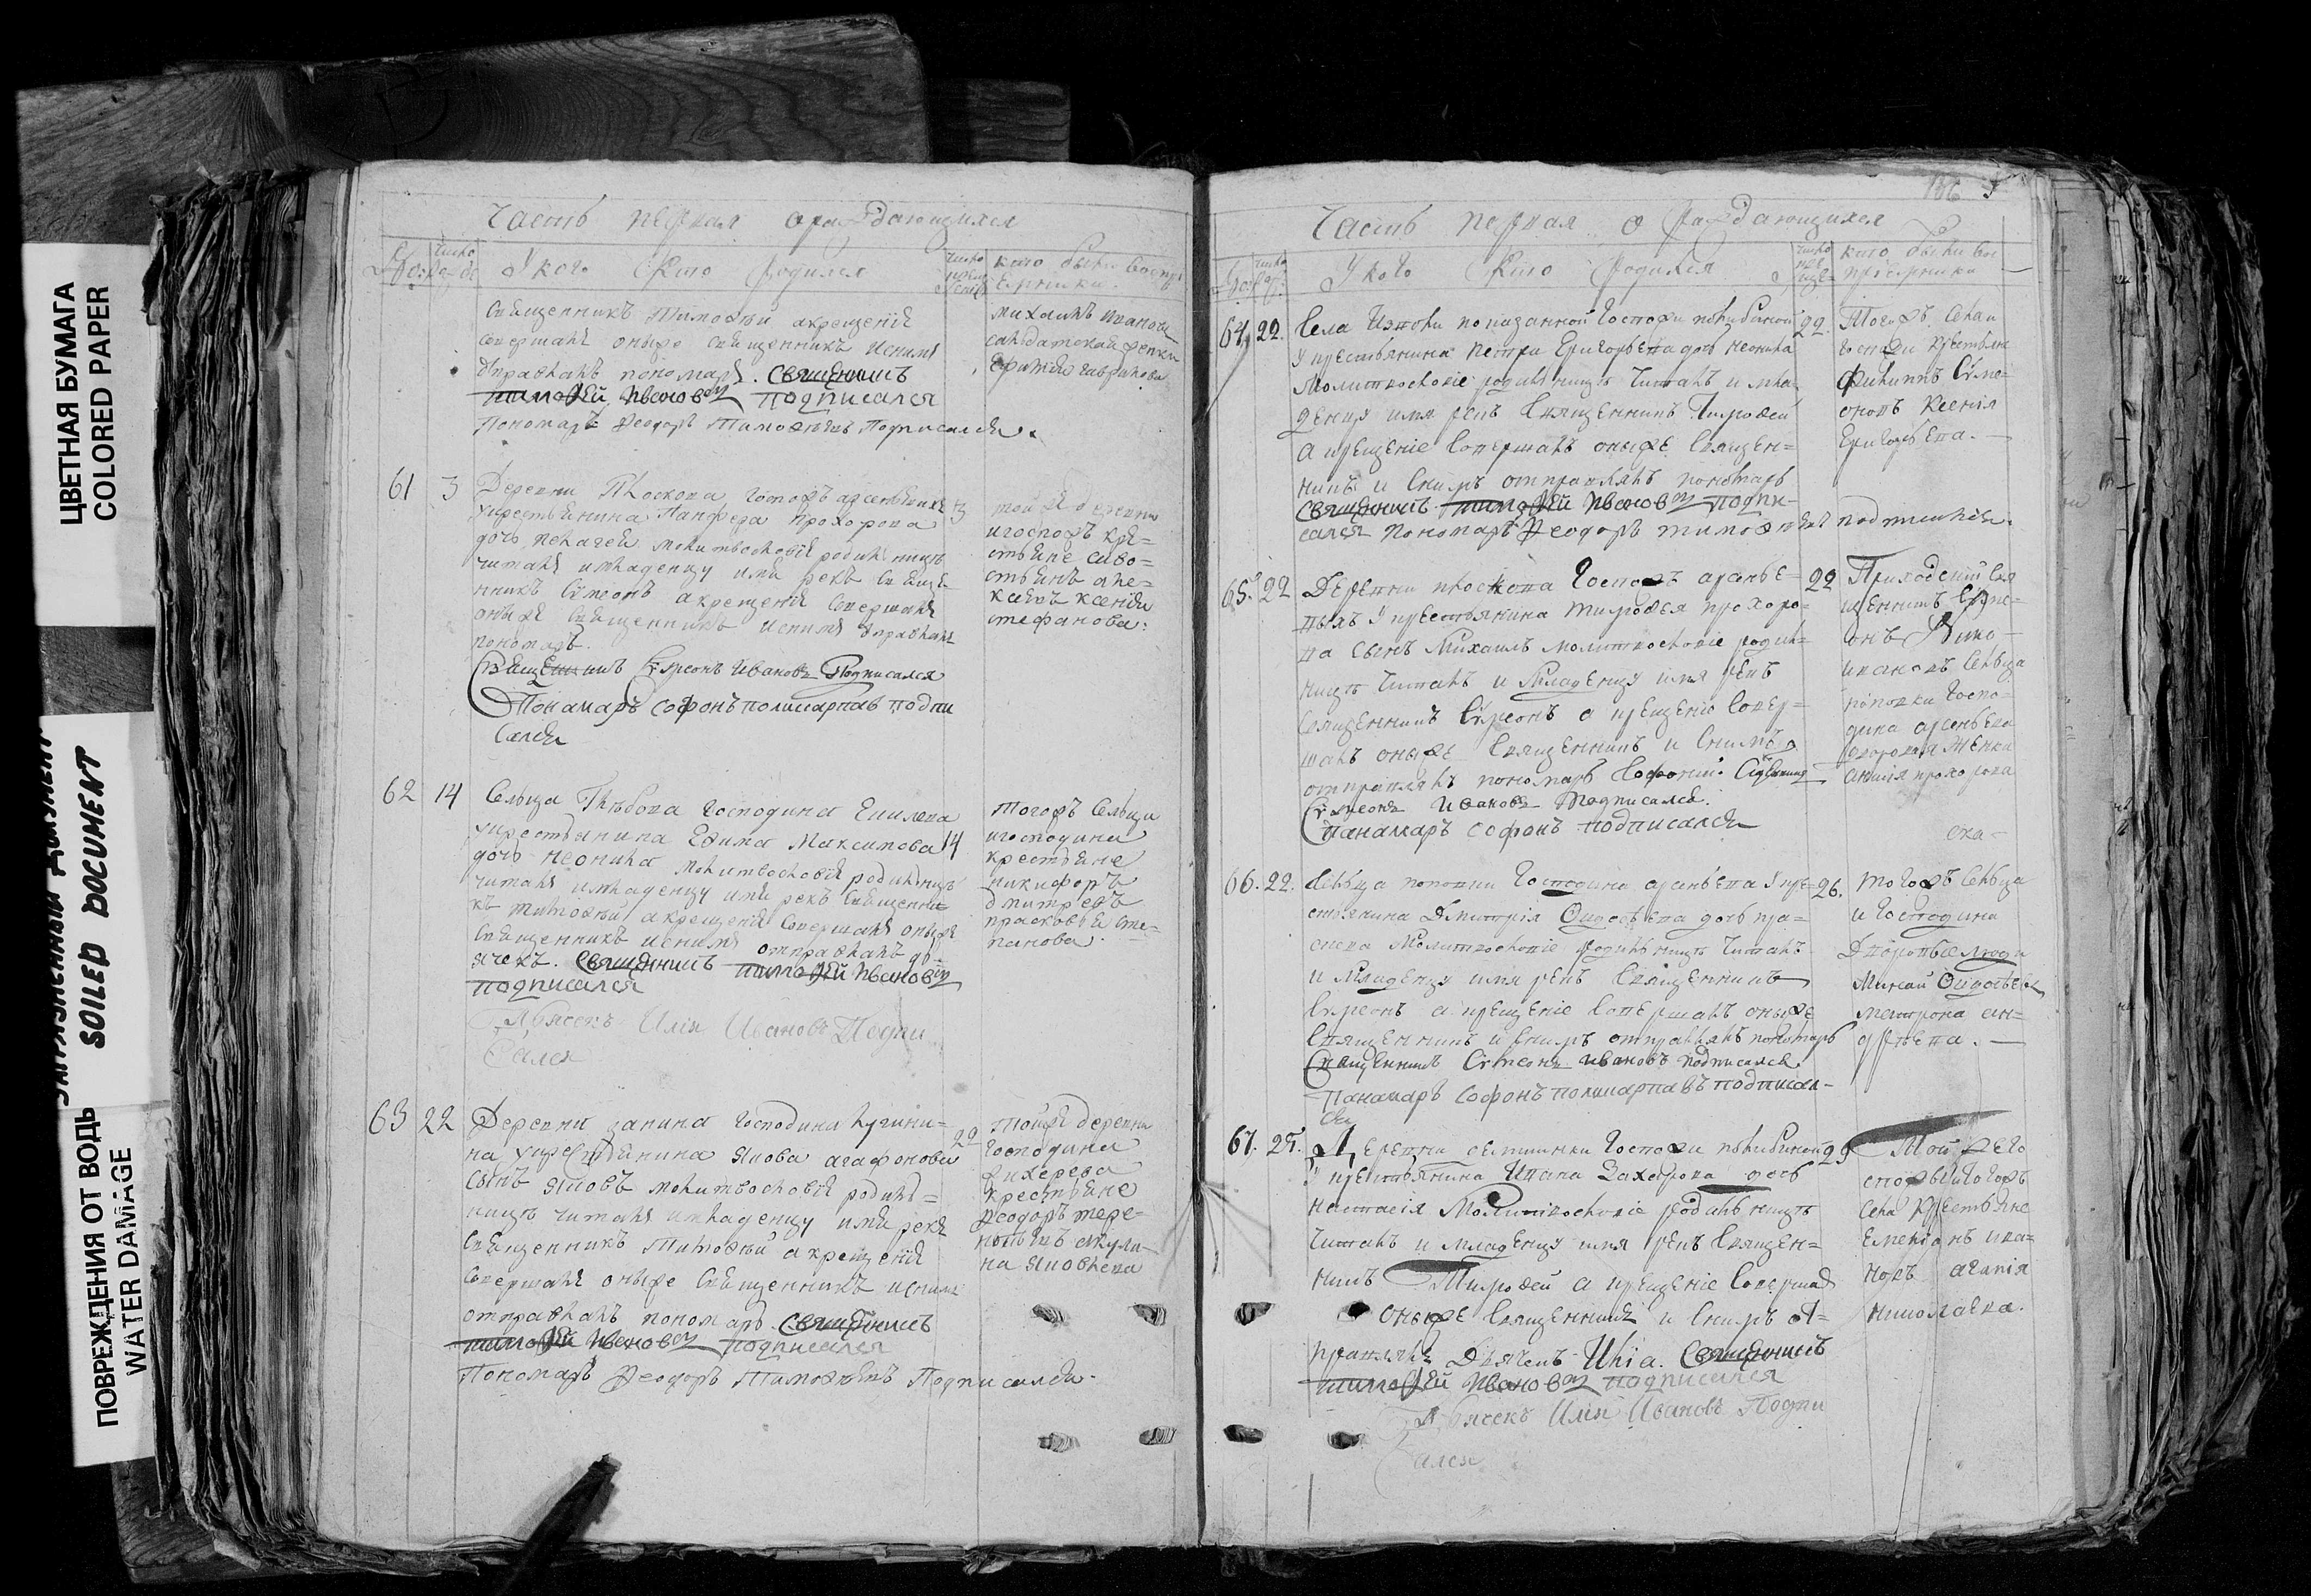 ЦВЕТНАЯ БУМАГА
COLORED PAPER
SOILED DOCUMENT
ПОВРЕЖДЕНИЯ ОТ ВОДЫ
WATER DAMAGE
Часть первая о раждающихся
У кого кто родился
кто были воспри
емники
Священникъ Тимофей а крещенїе
совершалъ оныже священникъ и снимъ
отправлялъ пономарь. священникъ
тимофей ивановъ подписался
Пономарь Феодоръ Тимофеевъ Подписался.
михаилъ иванов
61 3 Деревни Плоскова господъ арсеньевых 3
у крестьянина Панфера прохорова
дочь пелагея молитвословїе родильницѣ
читалъ и младенцу имя рекъ священ
никъ Сѵмеонъ а крещенїе совершалъ
оныже священникъ и снимъ отправлялъ
пономарь.
Священникъ Сѵмеонъ Ивановъ Подписался
Понамарь софонъ поликарпавъ подпи
сался
той же деревни
и господъ кре=
стьяне саво=
стьянъ але=
ксеевъ ксенїя
стефанова.
62 14 Сельца Глѣбова господина
у крестьянина Ефима Максимова 14
дочь неонила молитвословїе родильницѣ
читалъ и младенцу имя рекъ священни
къ тимофей а крещенїе совершалъ оныже
священникъ и снимъ отправлялъ дь
ячекъ. священникъ тимофей ивановъ
подписался
Дьячекъ Илїя Ивановъ Подпи
сался
тогожъ сельца
и господина
крестьяне
никифоръ
дмитревъ
прасковья сте=
панова.
63 22 Деревни занина господина лугини=
на у крестьянина якова агафонова 22
сынъ яковъ молитвословїе родиль=
ницѣ читалъ и младенцу имя рекъ
священникъ Тимофей а крещенїе
совершалъ оныже священникъ и снимъ
отправлялъ пономарь. священникъ
тимофей ивановъ подписался
Пономарь Феодоръ Тимофеевъ Подписался.
тойже деревни
господина
крестьяне
феодоръ тере=
нтьевъ акули=
на яковлева
Часть первая о раждающихся
У кого кто родился
кто были во
сприемники
64 22. Села показанной госпожи 22.
у крестьянина петра григорьева дочь неонила
молитвословїе родильницѣ читалъ и мла
денцу имя рекъ священникъ Тимофей
а крещенїе совершалъ оныже священ=
никъ и снимъ отправлялъ пономарь
священникъ тимофей ивановъ подпи-
сался пономарь Феодоръ тимофеевъ подписался.
Тогожъ села и
госпожи крестьяне
филиппъ сѵме=
оновъ ксенїя
григорьева.
65. 22 Деревни плоскова господъ арсенье= 22
выхъ у крестьянина тимофея прохоро=
ва сынъ Михаилъ молитвословїе родиль=
ницѣ читалъ и младенцу имя рекъ
священникъ Сѵмеонъ а крещенїе совер=
шалъ оныже священникъ и снимъ
отправлялъ пономарь Софонїй. Священникъ
Сѵмеонъ Ивановъ Подписался.
панамарь софонъ подписался
Приходскїй свя
щенникъ Сѵме=
онъ
ивановъ сельца
поповки госпо=
дина арсеньева
дворовая женка
прохорова
66. 22. Сельца поповки господина арсеньева у кре= 26.
стьянина Дмитрїя Федосѣева дочь пра=
сковья молитвословїе родильницѣ читалъ
и младенцу имя рекъ священникъ
Сѵмеонъ а крещенїе совершалъ оныже
священникъ и снимъ отправлялъ пономарь
Священникъ Сѵмеонъ ивановъ подписался.
Панамарь софонъ поликарпавъ подписал-
ся
тогожъ сельца
и господина
дворовые люди
матрона ан=
дреева.
67. 25. Деревни госпожи 25
у крестьянина Ивана Захарова дочь
настасїя Молитвословїе родильницѣ
читалъ и младенцу имя рекъ священ=
никъ Тимофей а крещенїе совершалъ
оныже священникъ и снимъ от=
правлялъ дьячекъ Илїа. Священникъ
тимофей ивановъ подписался
Дьячекъ Илїя Ивановъ Подпи
сался
Той же го
спожы и тогожъ
села крестьяне
емельянъ ива=
новъ агапїя
николаева.